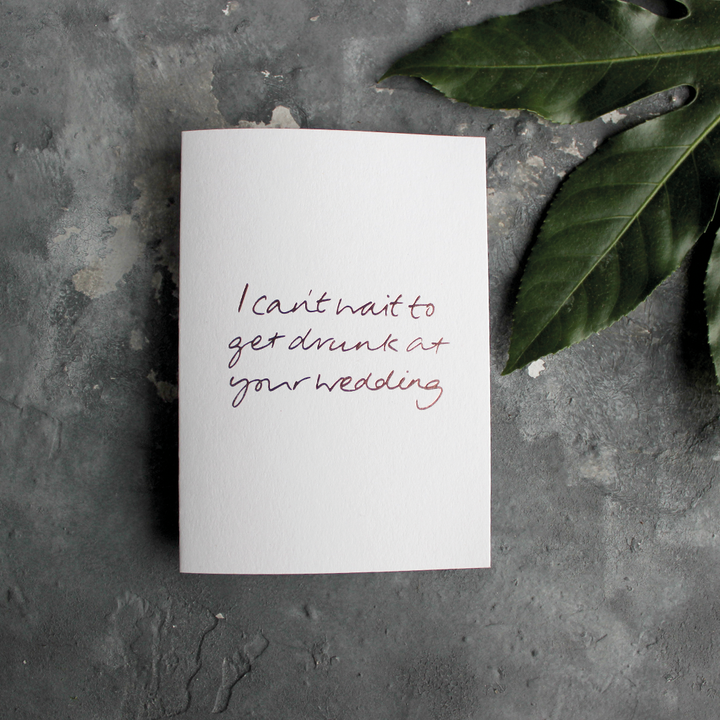 I can't wait to
get drunk at
your wedding